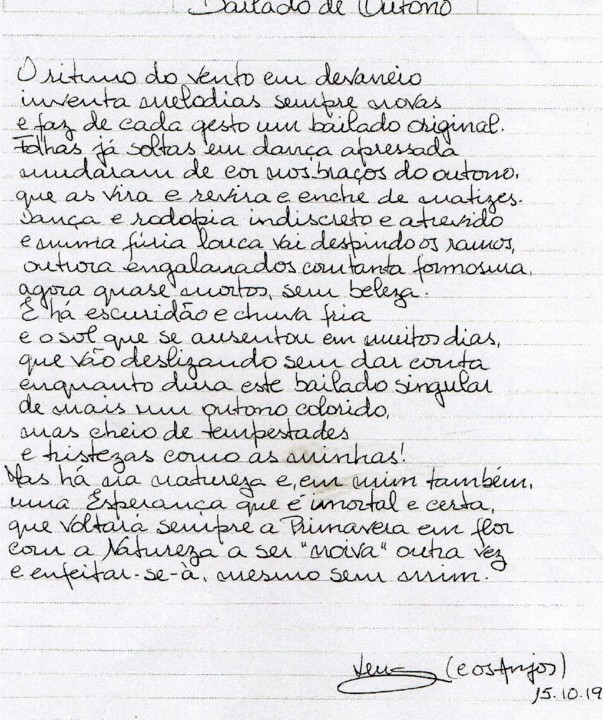 Bailado de Outono
O ritmo do vento em devaneio
inventa melodias sempre novas
e faz de cada gesto um bailado original.
Folhas já soltas em dança apressada
mudaram de cor nos braços do outono,
que as vira e revira e enche de matizes.
Dança e rodopia indiscreto e atrevido
e numa fúria louca vai despindo os ramos,
outrora engalanados com tanta formosura,
agora quase mortos, sem beleza.
E há escuridão e chuva fria
e o sol que se ausentou em muitos dias,
que vão deslizando sem dar conta
enquanto dura este bailado singular
de mais um outono colorido,
mas cheio de tempestades
e tristezas como as minhas!
Mas há na natureza e, em mim também,
uma Esperança que é imortal e certa,
que voltará sempre a Primavera em flor
com a Natureza a ser "noiva" outra vez
e enfeitar-se-à, mesmo sem mim.
(e os Anjos)
15.10.19